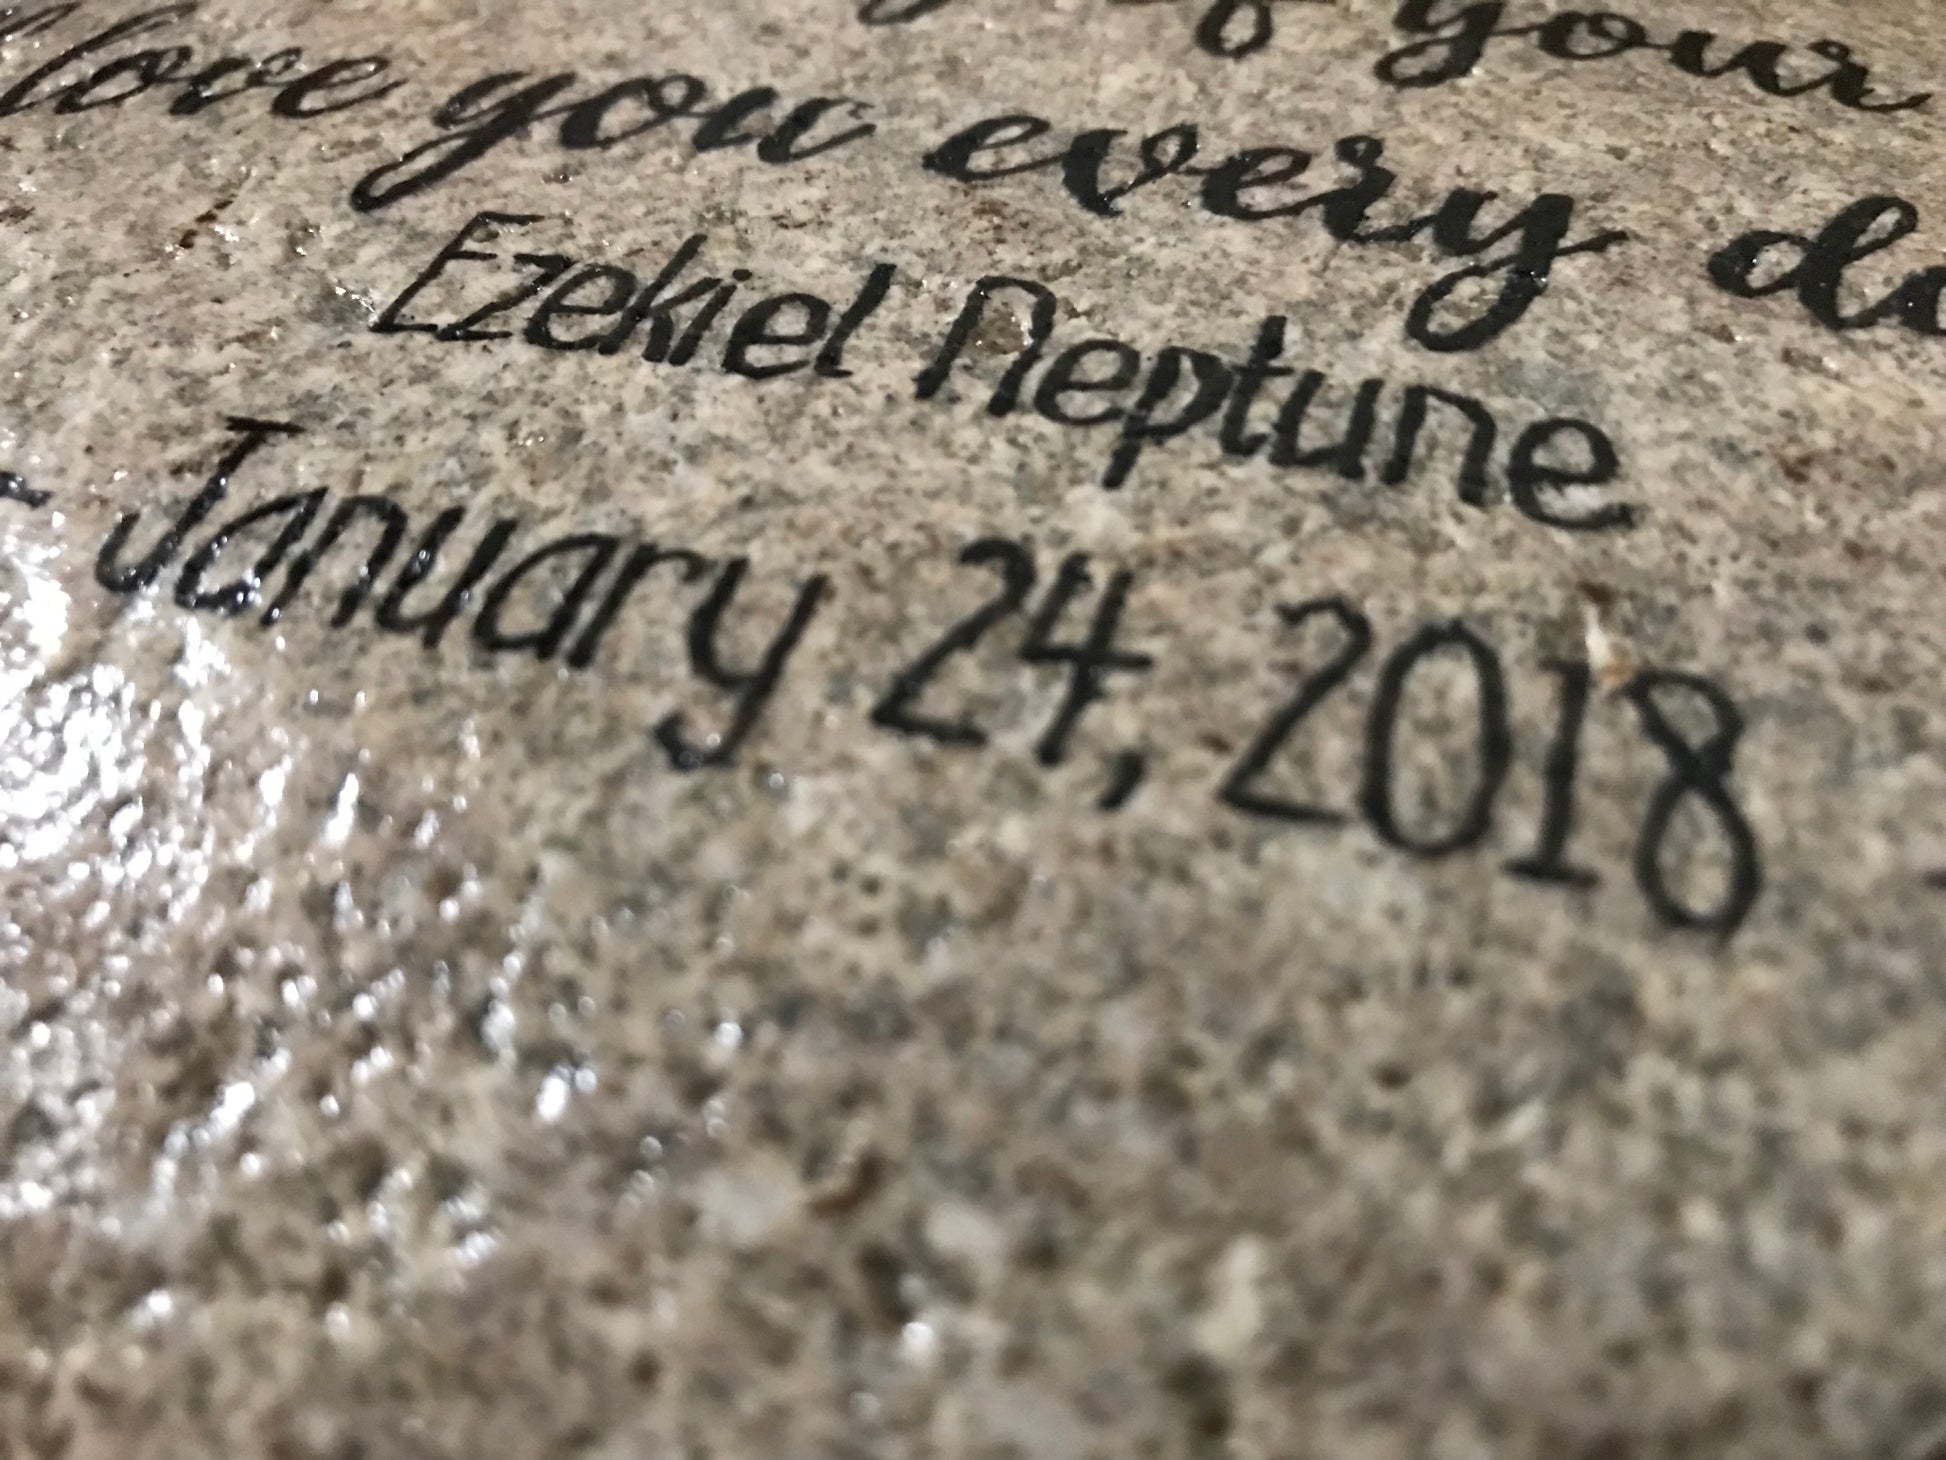 of your
love you every
Ezekiel Neptune
- January 24, 2018 -